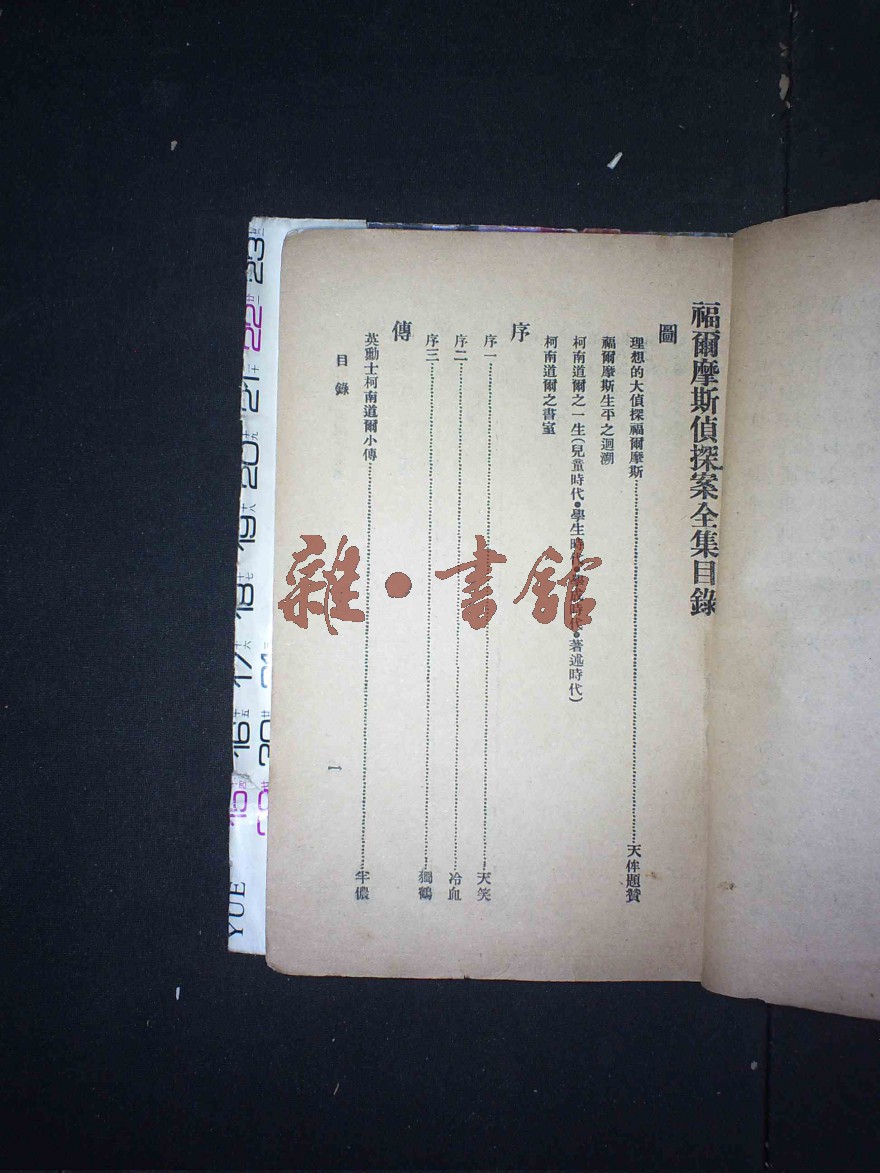 福爾摩斯偵探案全集目錄
圖
理想的大偵探福爾摩斯……天侔題贊
福爾摩斯生平之迴溯
柯南道爾之一生(兒童時代•學生時代•學成時代•著述時代)
柯南道爾之書室
序
序一……天笑
序二……冷血
序三……獨鶴
傳
英勳士柯南道爾小傳……半儂
目錄
一
雜•書館
23
22
21
20
19
18
17
16
15
YUE